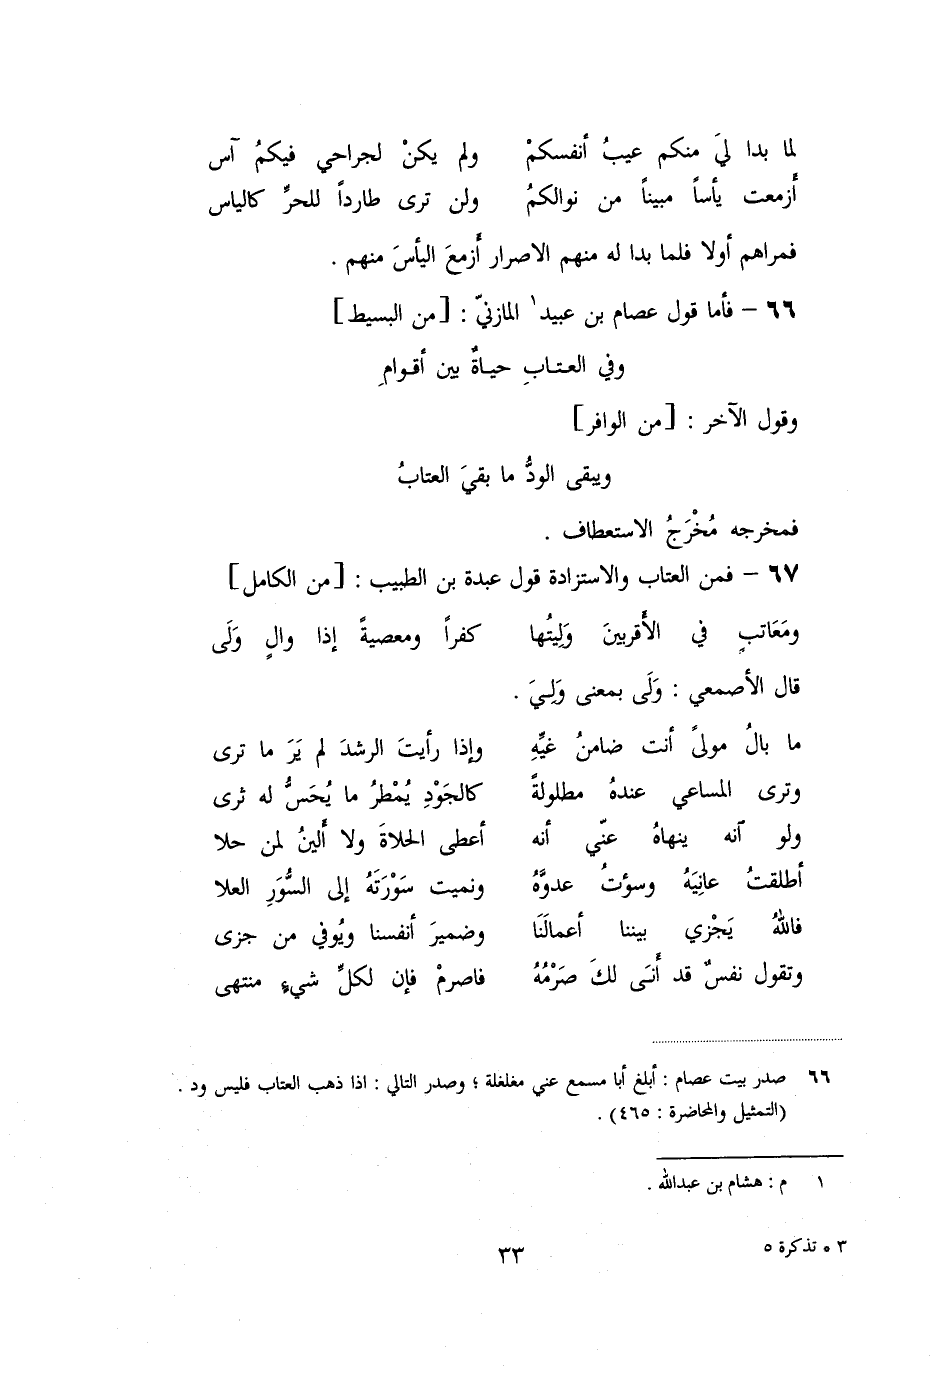 لما بدا ليَ منكم عيبُ أنفسكمْ ولم يكنْ لجراحي فيكمُ آس
أزمعت يأساً مبيناً من نوالكمُ ولن ترى طارداً للحرِّ كالياس
فمراهم أولا فلما بدا له منهم الاصرار أزمعَ اليأسَ منهم .
٦٦ – فأما قول عصام بن عبيد١ المازنيّ : [من البسيط]
وفي العـتـابِ حيـاةٌ بين أقـوامِ
وقول الآخر : [من الوافر]
ويبقى الودُّ ما بقيَ العتابُ
فمخرجه مُخْرَجُ الاستعطاف .
٦٧ – فمن العتاب والاستزادة قول عبدة بن الطبيب : [من الكامل]
ومَعَاتبٍ في الأقربينَ وَلِيتُها كفراً ومعصيةً إذا والٍ وَلَى
قال الأصمعي : وَلَى بمعنى وَلِيَ .
ما بالُ مولىً أنت ضامنُ غيِّهِ وإذا رأيتَ الرشدَ لم يَرَ ما ترى
وترى المساعي عندهُ مطلولةً كالجَوْدِ يُمْطرُ ما يُحَسُّ له ثرى
ولو آنه ينهاهُ عنّي أنه أعطى الحلاةَ ولا أَلينُ لمن حلا
أطلقتُ عانِيَهُ وسؤتُ عدوَّهُ ونميت سَوْرَتَهُ إلى السُّوَرِ العلا
فاللهُ يَجْزي بيننا أعمالَنَا وضميرَ أنفسنا ويُوفي من جزى
وتقول نفسٌ قد أَنَى لكَ صَرْمُهُ فاصرمْ فإن لكلِّ شيءٍ منتهى
٦٦ صدر بيت عصام : أبلغ أبا مسمع عني مغلغلة ؛ وصدر التالي : اذا ذهب العتاب فليس ود .
(التمثيل والمحاضرة : ٤٦٥) .
١ م : هشام بن عبدالله .
٣ • تذكرة ٥
٣٣